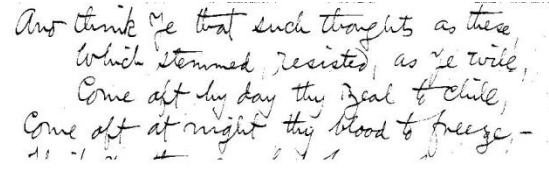 And think ye that such thoughts as these,
Which stemmed, resisted, as ye will,
Come oft by day thy zeal to chill,
Come oft at night thy blood to freeze, –